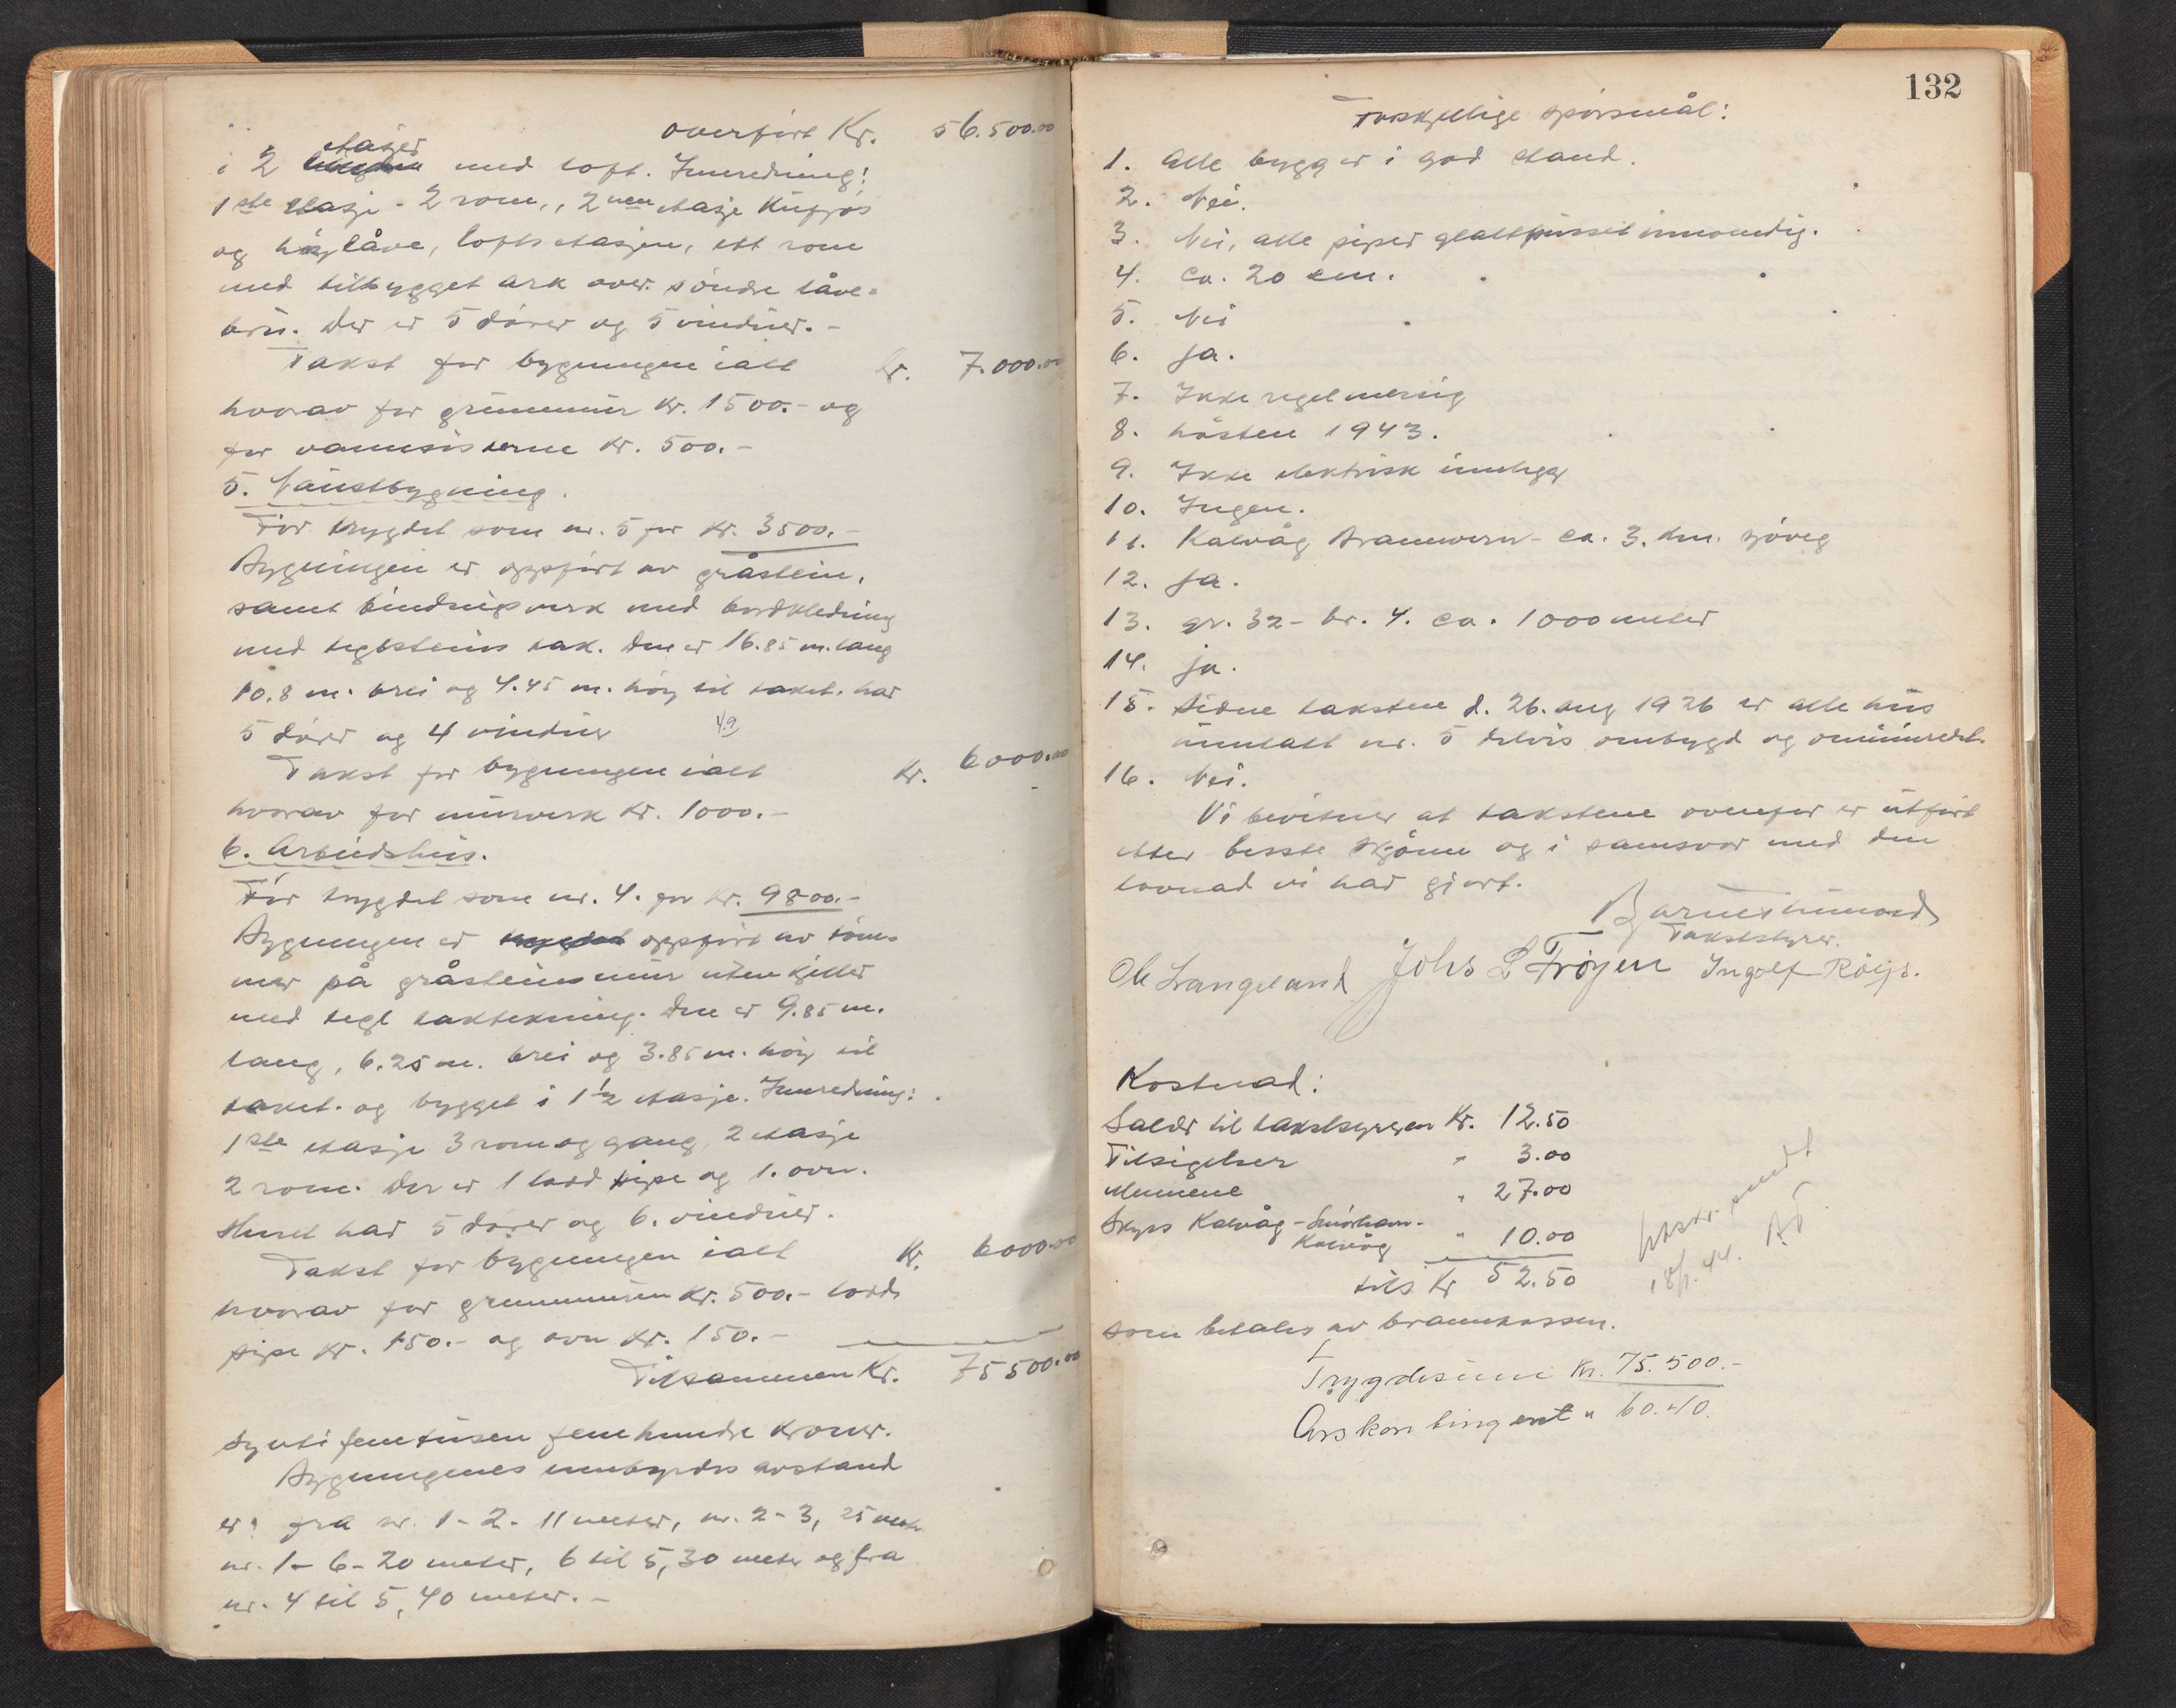 overført Kr. 56.500.00
etasjer
i 2 med loft. Innredning:
1ste etasje - 2 rom,, 2nen etasje kufjøs
og høylåve, loftsetasjen, ett rom
med tilbygget ark over søndre låve-
bru. Der er 5 dører og 5 vinduer. -
Takst for bygningen ialt kr. 7.000.00
hvorav for grunnmur kr. 1500.- og
for vannsisterne kr. 500.-
5. Naustbygning.
Før trygdet som nr. 5 for kr. 3500.-
Bygningen er oppført av gråstein,
samt bindingsverk med bordkledning
med teglsteins tak. Den er 16.85 m. lang
10.8 m. brei og 4.45 m. høy til taket. har
5 dører og 4 vinduer
Takst for bygningen ialt kr. 6000.00
hvorav for murverk kr. 1000.-
6. Arbeidshus.
Før trygdet som nr. 4. for kr. 9800.-
Bygningen er trygdet oppført av tøm-
mer på gråsteinsmur uten kjeller
med tegl taktekning. Den er 9.85 m.
lang, 6.25 m. brei og 3.85 m. høy til
taket. og bygget i 1 1/2 etasje. Innredning:
1ste etasje 3 rom og gang, 2 etasje
2 rom. Der er 1 lodd pipe og 1. ovn.
Huset har 5 dører og 6. vinduer.
Takst for bygningen ialt kr. 6000.00
hvorav for grunnmuren kr. 500.- lodd
pipe kr. 150.- og ovn kr. 150.-
Tilsammen Kr. 75500.00
Syttifemtusen femhundre kroner.
Bygningenes innbyrdes avstand
er: fra nr. 1-2- 11 meter, nr. 2-3, 25 meter
nr. 1-6-20 meter, 6 til 5, 30 meter og fra
nr. 4 til 5, 40 meter. -
132
Forskjellige spørsmål:
1. Alle bygg er i god stand.
2. Nei.
3. Nei, alle piper glattpusset innvendig.
4. Ca. 20 cm.
5. Nei
6. Ja.
7. Ikke regelmessig
8. høsten 1943.
9. Ikke elektrisk innlegg
10. Ingen.
11. Kalvåg Brannvern - ca. 3. km. sjøveg
12. Ja.
13. gr. 32 - br. 4. ca. 1000 meter
14. ja.
15. Siden taksten d. 26. aug 1926 er alle hus
unntatt nr. 5 delvis ombygd og ominnredet.
16. Nei.
Vi bevitner at takstene ovenfor er utført
etter beste skjønn og i samsvar med den
lovnad vi har gjort.
Takststyrer.
Ole Langeland Johs L Frøyen Ingolf
Kostnad:
Salær til takststyreren Kr. 12.50
Tilsigelser " 3.00
Mennene " 27.00
Skyss Kalvåg - Smørhavn-
Kalvåg " 10.00
tils. Kr 52.50
som betales av brannkassen.
Utskr. sendt
18/1. 44.
Trygdesum Kr. 75.500.-
Årskontingent " 60.40.